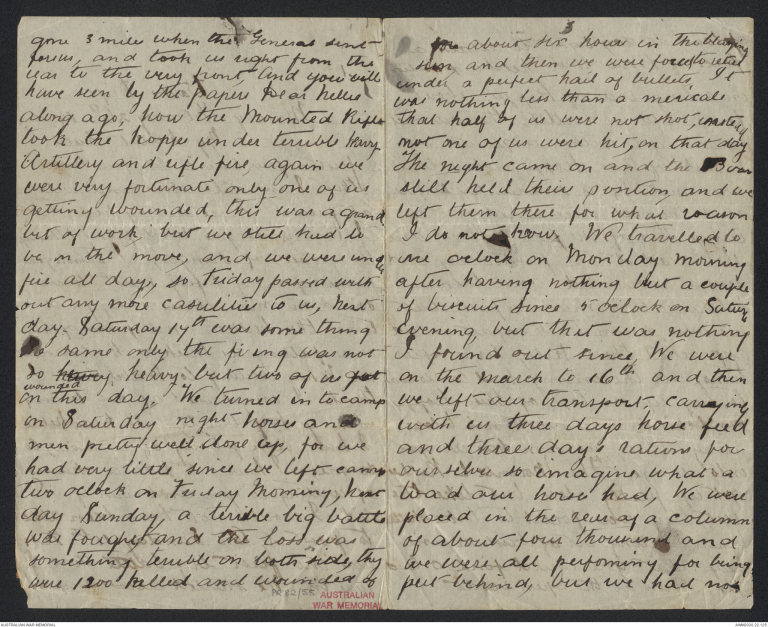 gone 3 miles when the General sent
for us, and took us right from the
rear to the very front and you will
have seen by the papers Dear Nellie
along ago, how the Mounted Rifles
took the kopjes under terrible heavy
Artillery and rifle fire, again we
were very fortunate only one of us
getting wounded, this was a grand
bit of work but we still had to
be on the move, and we were under
fire all day, so Friday passed with
out any more casulities to us, next
day Saturday 17th was some thing
the same only the firing was not
so heavy heavy but two of us got
wounded
on this day. We turned in to camp
on Saturday night horses and
men pretty well done up, for we
had very little since we left camp
two oclock on Friday Morning, next
day Sunday, a terrible big battle
was fought and the loss was
something terrible on both side, they
were 1200 killed and wounded of
PR 82/55
AUSTRALIAN
WAR MEMORIAL
3
for about six hours in the blazing
sun and then we were forced to retire
under a perfect hail of bullets, It
was nothing less than a mericale
that half of us were not shot, instead
not one of us were hit, on that day
The night came on and the Boers
still held their position, and we
left them there for what reason
I do not know. We travelled to
one oclock on Monday morning
after having nothing but a couple
of biscuits since 5 oclock on Saturday
evening but that was nothing
I found out since, We were
on the march to 16th and then
we left our transport, carrying
with us three days horse feed
and three day's rations for
ourselves so imagine what a
load our horses had, We were
placed in the rear of a column
of about four thousand and
we were all perfoming for being
put behind, but we had not
AUSTRALIAN WAR MEMORIAL